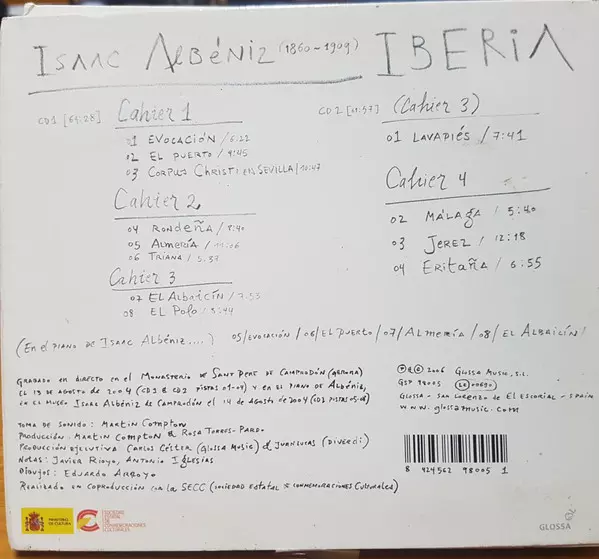 ISAAC ALBÉNIZ (1860-1909) IBERIA
CD1 [64:28] Cahier 1
01 EVOCACIÓN / 6:22
02 EL PUERTO / 4:45
03 CORPUS CHRISTI EN SEVILLA / 10:47
Cahier 2
04 RONDEÑA / 8:40
05 ALMERÍA / 11:06
06 TRIANA / 5:37
Cahier 3
07 EL ALBAICÍN / 7:53
08 EL POLO / 8:44
CD2 [:57] (Cahier 3)
01 LAVAPIÉS / 7:41
Cahier 4
02 MÁLAGA / 5:40
03 JEREZ / 12:18
04 ERITAÑA / 6:55
(EN EL PIANO DE ISAAC ALBÉNIZ....) 05/EVOCACIÓN/06/EL PUERTO/07/ALMERÍA/08/EL ALBAICÍN/
GRABADO EN DIRECTO EN EL MONASTERIO DE SANT PERE DE CAMPRODÓN (GERONA)
EL 13 DE AGOSTO DE 2004 (CD1 & CD2 PISTAS 01-04) Y EN EL PIANO DE ALBÉNIZ,
EN EL MUSEO ISAAC ALBÉNIZ DE CAMPRODÓN EL 14 DE AGOSTO DE 2004 (CD2 PISTAS 05-08)
TOMA DE SONIDO: MARTIN COMPTON
PRODUCCIÓN: MARTIN COMPTON & ROSA TORRES-PARDO
PRODUCCIÓN EJECUTIVA: CARLOS CÉSTER (GLOSSA MUSIC) & JUAN LUCAS (DIVERDI)
NOTAS: JAVIER RIOYO, ANTONIO IGLESIAS
DIBUJOS: EDUARDO ARROYO
REALIZADO EN COPRODUCCIÓN CON LA SECC (SOCIEDAD ESTATAL DE CONMEMORACIONES CULTURALES)
℗ & © 2006 GLOSSA MUSIC, S.L.
GSP 98005 LC 00690
GLOSSA - SAN LORENZO DE EL ESCORIAL - SPAIN
WWW.glossamusic.com
8 424562 98005 1
MINISTERIO DE CULTURA
SOCIEDAD ESTATAL DE CONMEMORACIONES CULTURALES
GLOSSA